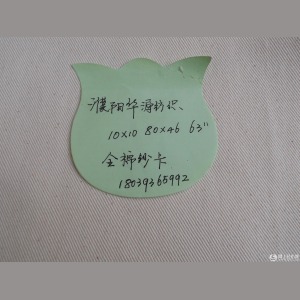 濮阳华源纺织
10×10 80×46 63"
全棉纱卡
18039365992